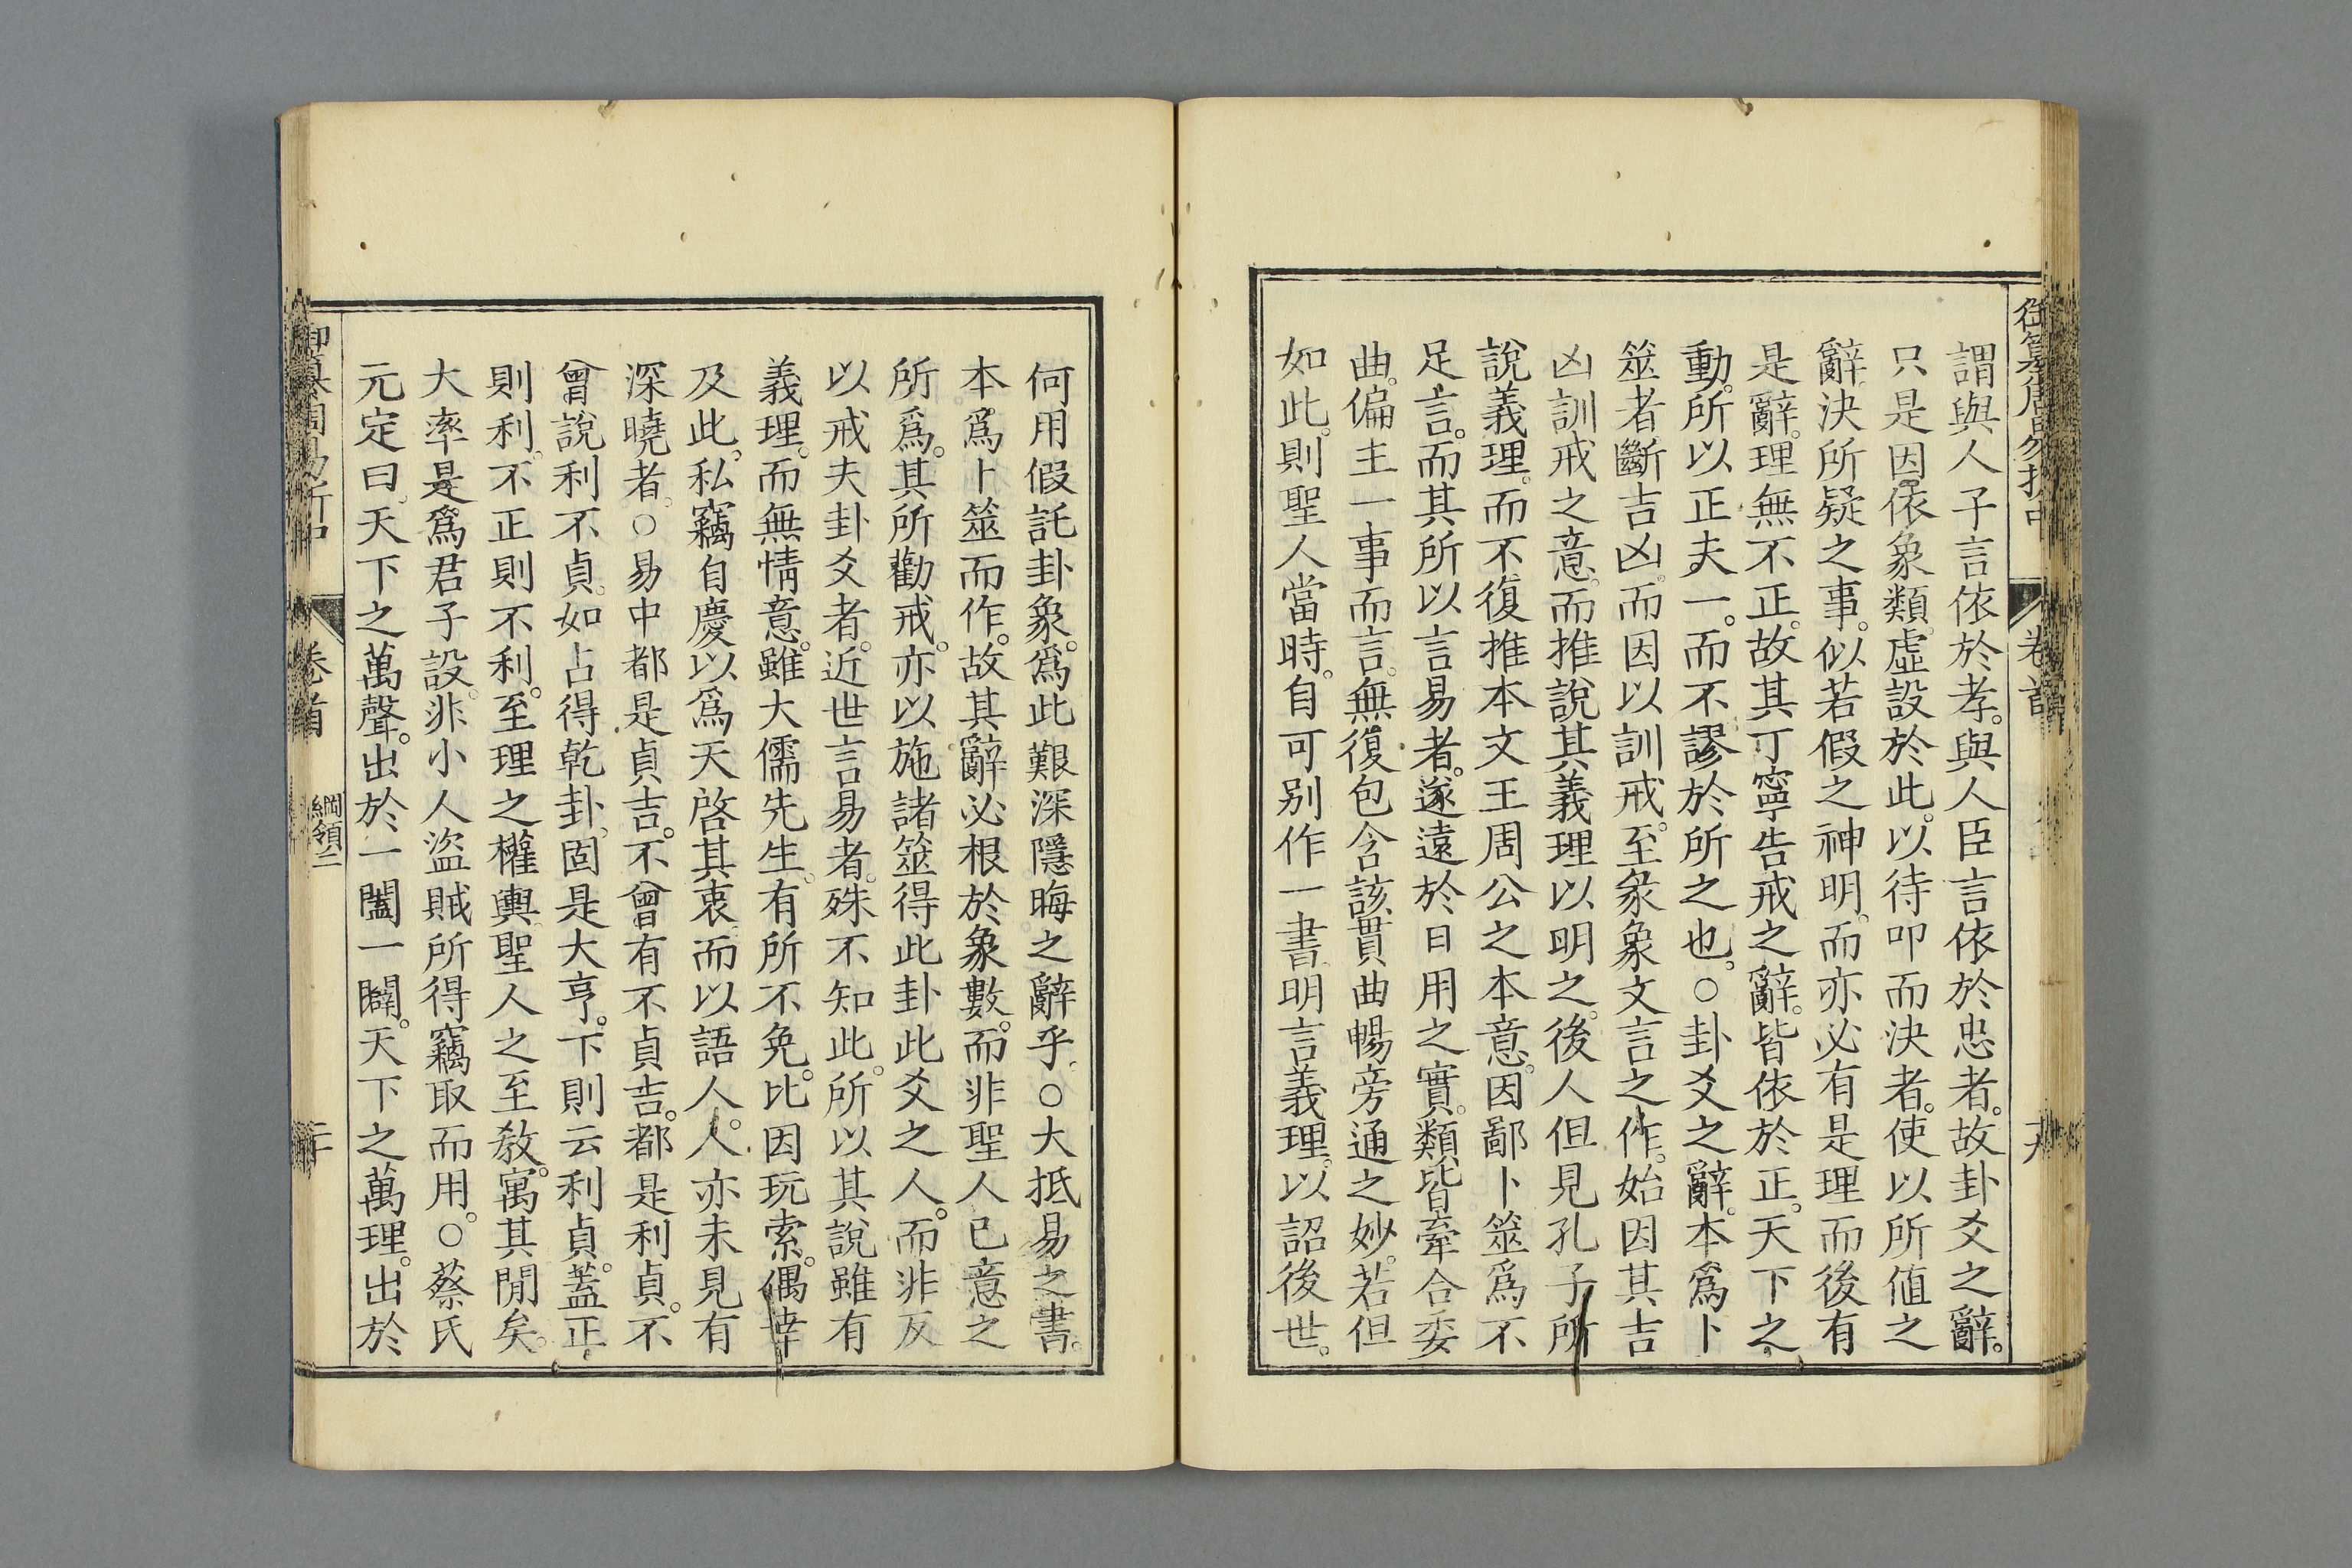 謂與人子言依於孝。與人臣言依於忠者。故卦爻之辭。
只是因依象類。虛設於此。以待叩而決者。使以所値之
辭。決所疑之事。似若假之神明。而亦必有是理而後有
是辭。理無不正。故其丁寧告戒之辭。皆依於正。天下之
動。所以正夫一。而不謬於所之也。○卦爻之辭。本爲卜
筮者斷吉凶。而因以訓戒。至彖象文言之作。始因其吉
凶訓戒之意。而推說其義理以明之。後人但見孔子所
說義理。而不復推本文王周公之本意。因鄙卜筮爲不
足言。而其所以言易者。遂遠於日用之實。類皆牽合委
曲。偏主一事而言。無復包含該貫曲暢旁通之妙。若但
如此。則聖人當時。自可别作一書。明言義理。以詔後世。
卷首
何用假託卦象。爲此艱深隱晦之辭乎。○大抵易之書。
本爲卜筮而作。故其辭必根於象數。而非聖人已意之
所爲。其所勸戒。亦以施諸筮得此卦此爻之人。而非反
以戒夫卦爻者。近世言易者。殊不知此。所以其說雖有
義理。而無情意。雖大儒先生。有所不免。比因玩索。偶幸
及此。私竊自慶。以爲天啓其衷。而以語人。人亦未見有
深曉者。○易中都是貞吉。不曾有不貞吉。都是利貞。不
曾說利不貞。如占得乾卦。固是大亨。下則云利貞。蓋正
則利。不正則不利。至理之權輿。聖人之至教。寓其閒矣。
大率是爲君子設。非小人盜賊所得竊取而用。○蔡氏
元定曰。天下之萬聲。出於一闔一闢。天下之萬理。出於
御纂周易折中
卷首
綱領二